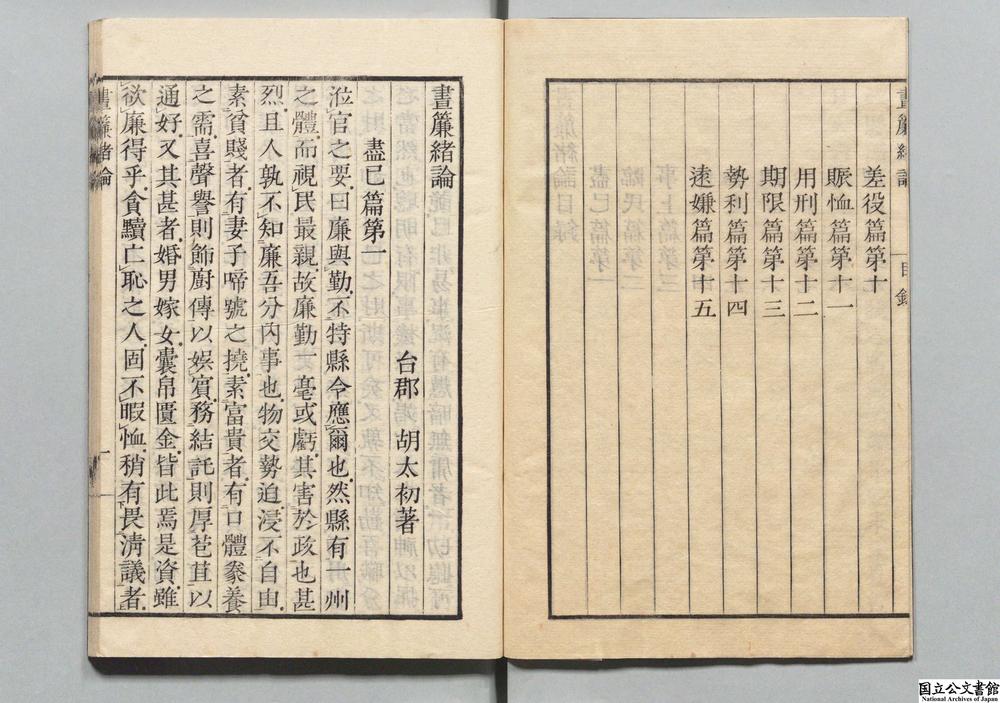 晝簾緒論 目錄
差役篇第十
賑恤篇第十一
用刑篇第十二
期限篇第十三
勢利篇第十四
遠嫌篇第十五
晝簾緒論
台郡 胡太初著
盡己篇第一
涖官之要曰廉與勤不特縣令應爾也然縣有一州
之體而視民最親故廉勤一毫或虧其害於政也甚
烈且人孰不知廉吾分內事也物交勢迫浸不自由
素貧賤者有妻子啼號之撓素富貴者有口體豢養
之需喜聲譽則飾廚傳以娛賓務結託則厚苞苴以
通好又其甚者婚男嫁女囊帛匱金皆此焉是資雖
欲廉得乎貪黷亡恥之人固不暇恤稍有畏淸議者
晝簾緒論 一
国立公文書館
National Archives of Japan